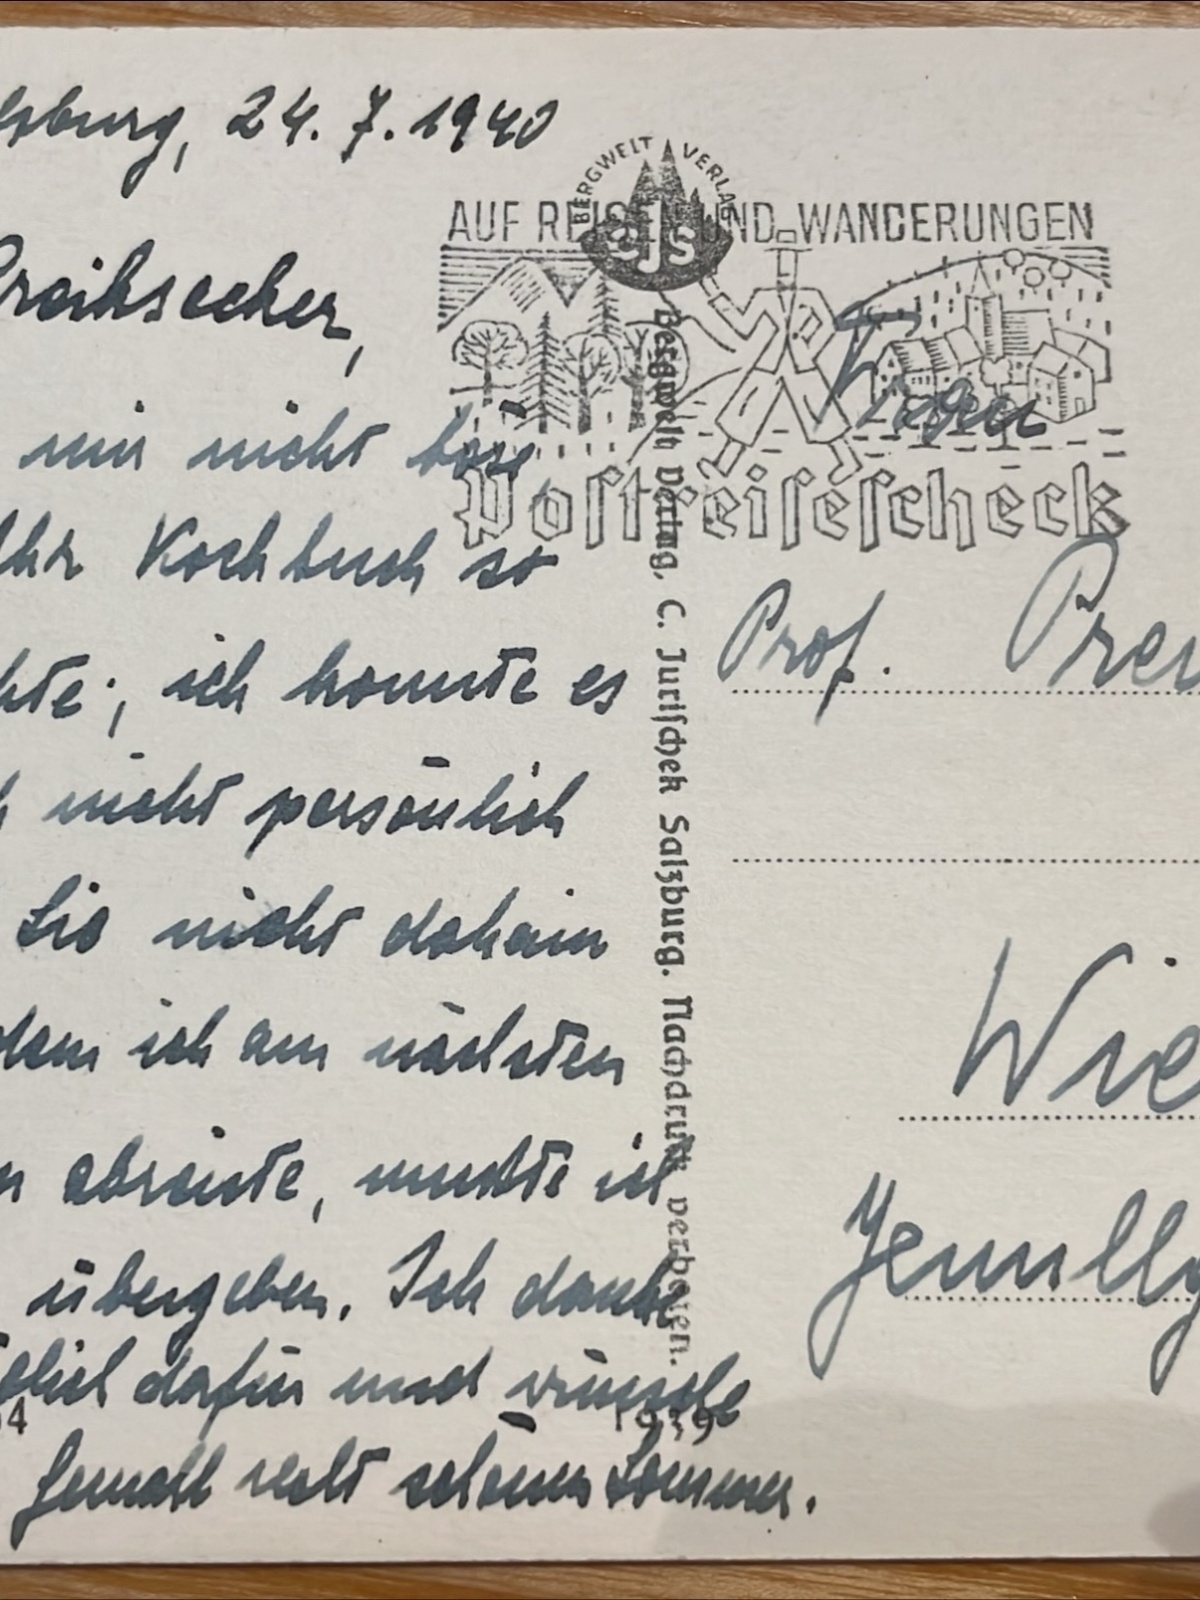 lsburg, 24. 7. 1940
Preihsecker,
mir nicht böse,
Ihr Kochbuch so
hte; ich konnte es
h nicht persönlich
Sie nicht daheim
dem ich am nächsten
abreiste, musste ich
übergeben. Ich danke
dafür und wünsche
Gemahl recht schönen Sommer.
BERGWELT VERLAG
CJS
AUF REISEN UND WANDERUNGEN
Postreisescheck
Bergwelt Verlag, C. Jurischek Salzburg. Nachdruck verboten.
4
1939
Frau
Prof. Prei
Wie